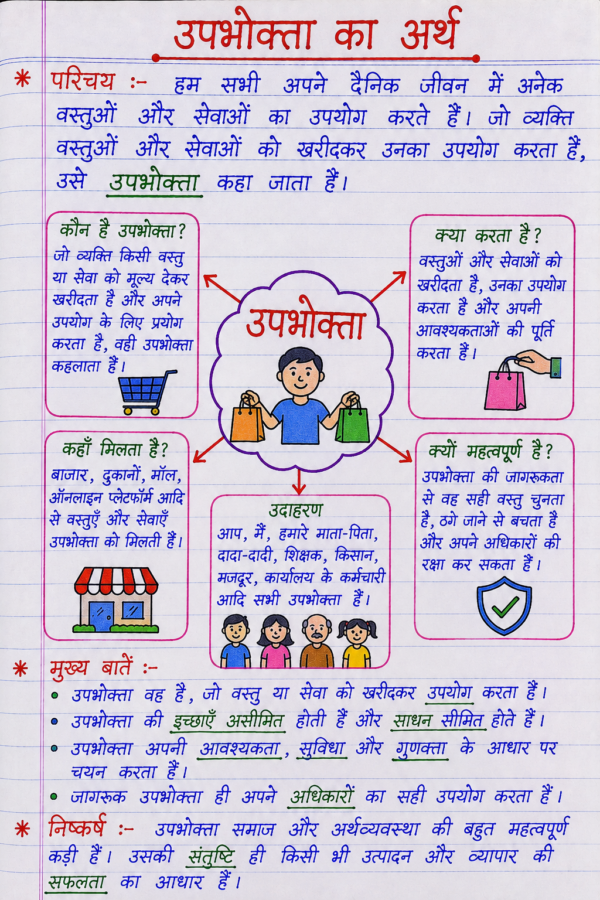 उपभोक्ता का अर्थ
* परिचय :- हम सभी अपने दैनिक जीवन में अनेक
वस्तुओं और सेवाओं का उपयोग करते हैं। जो व्यक्ति
वस्तुओं और सेवाओं को खरीदकर उनका उपयोग करता है,
उसे उपभोक्ता कहा जाता हैं।
कौन है उपभोक्ता?
जो व्यक्ति किसी वस्तु
या सेवा को मूल्य देकर
खरीदता है और अपने
उपयोग के लिए प्रयोग
करता है, वही उपभोक्ता
कहलाता हैं।
क्या करता है?
वस्तुओं और सेवाओं को
खरीदता है, उनका उपयोग
करता है और अपनी
आवश्यकताओं की पूर्ति
करता हैं।
उपभोक्ता
कहाँ मिलता है?
बाजार, दुकानों, मॉल,
ऑनलाइन प्लेटफॉर्म आदि
से वस्तुएँ और सेवाएँ
उपभोक्ता को मिलती हैं।
उदाहरण
आप, मैं, हमारे माता-पिता,
दादा-दादी, शिक्षक, किसान,
मजदूर, कार्यालय के कर्मचारी
आदि सभी उपभोक्ता हैं।
क्यों महत्वपूर्ण है?
उपभोक्ता की जागरूकता
से वह सही वस्तु चुनता
है, ठगे जाने से बचता है
और अपने अधिकारों की
रक्षा कर सकता हैं।
* मुख्य बातें :-
• उपभोक्ता वह है, जो वस्तु या सेवा को खरीदकर उपयोग करता हैं।
• उपभोक्ता की इच्छाएँ असीमित होती हैं और साधन सीमित होते हैं।
• उपभोक्ता अपनी आवश्यकता, सुविधा और गुणक्ता के आधार पर
चयन करता हैं।
• जागरूक उपभोक्ता ही अपने अधिकारों का सही उपयोग करता हैं।
* निष्कर्ष :- उपभोक्ता समाज और अर्थव्यवस्था की बहुत महत्वपूर्ण
कड़ी हैं। उसकी संतुष्टि ही किसी भी उत्पादन और व्यापार की
सफलता का आधार हैं।